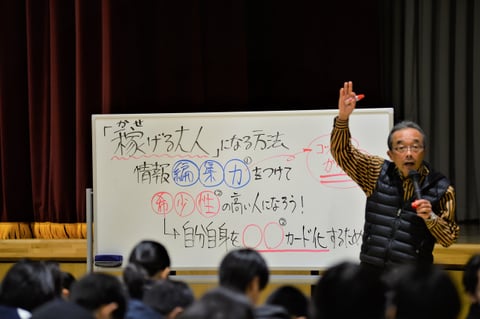 かせ
「稼げる大人」になる方法
情報編集力①をつけて
希少性②の高い人になろう!
↳自分自身を○○③カード化するため